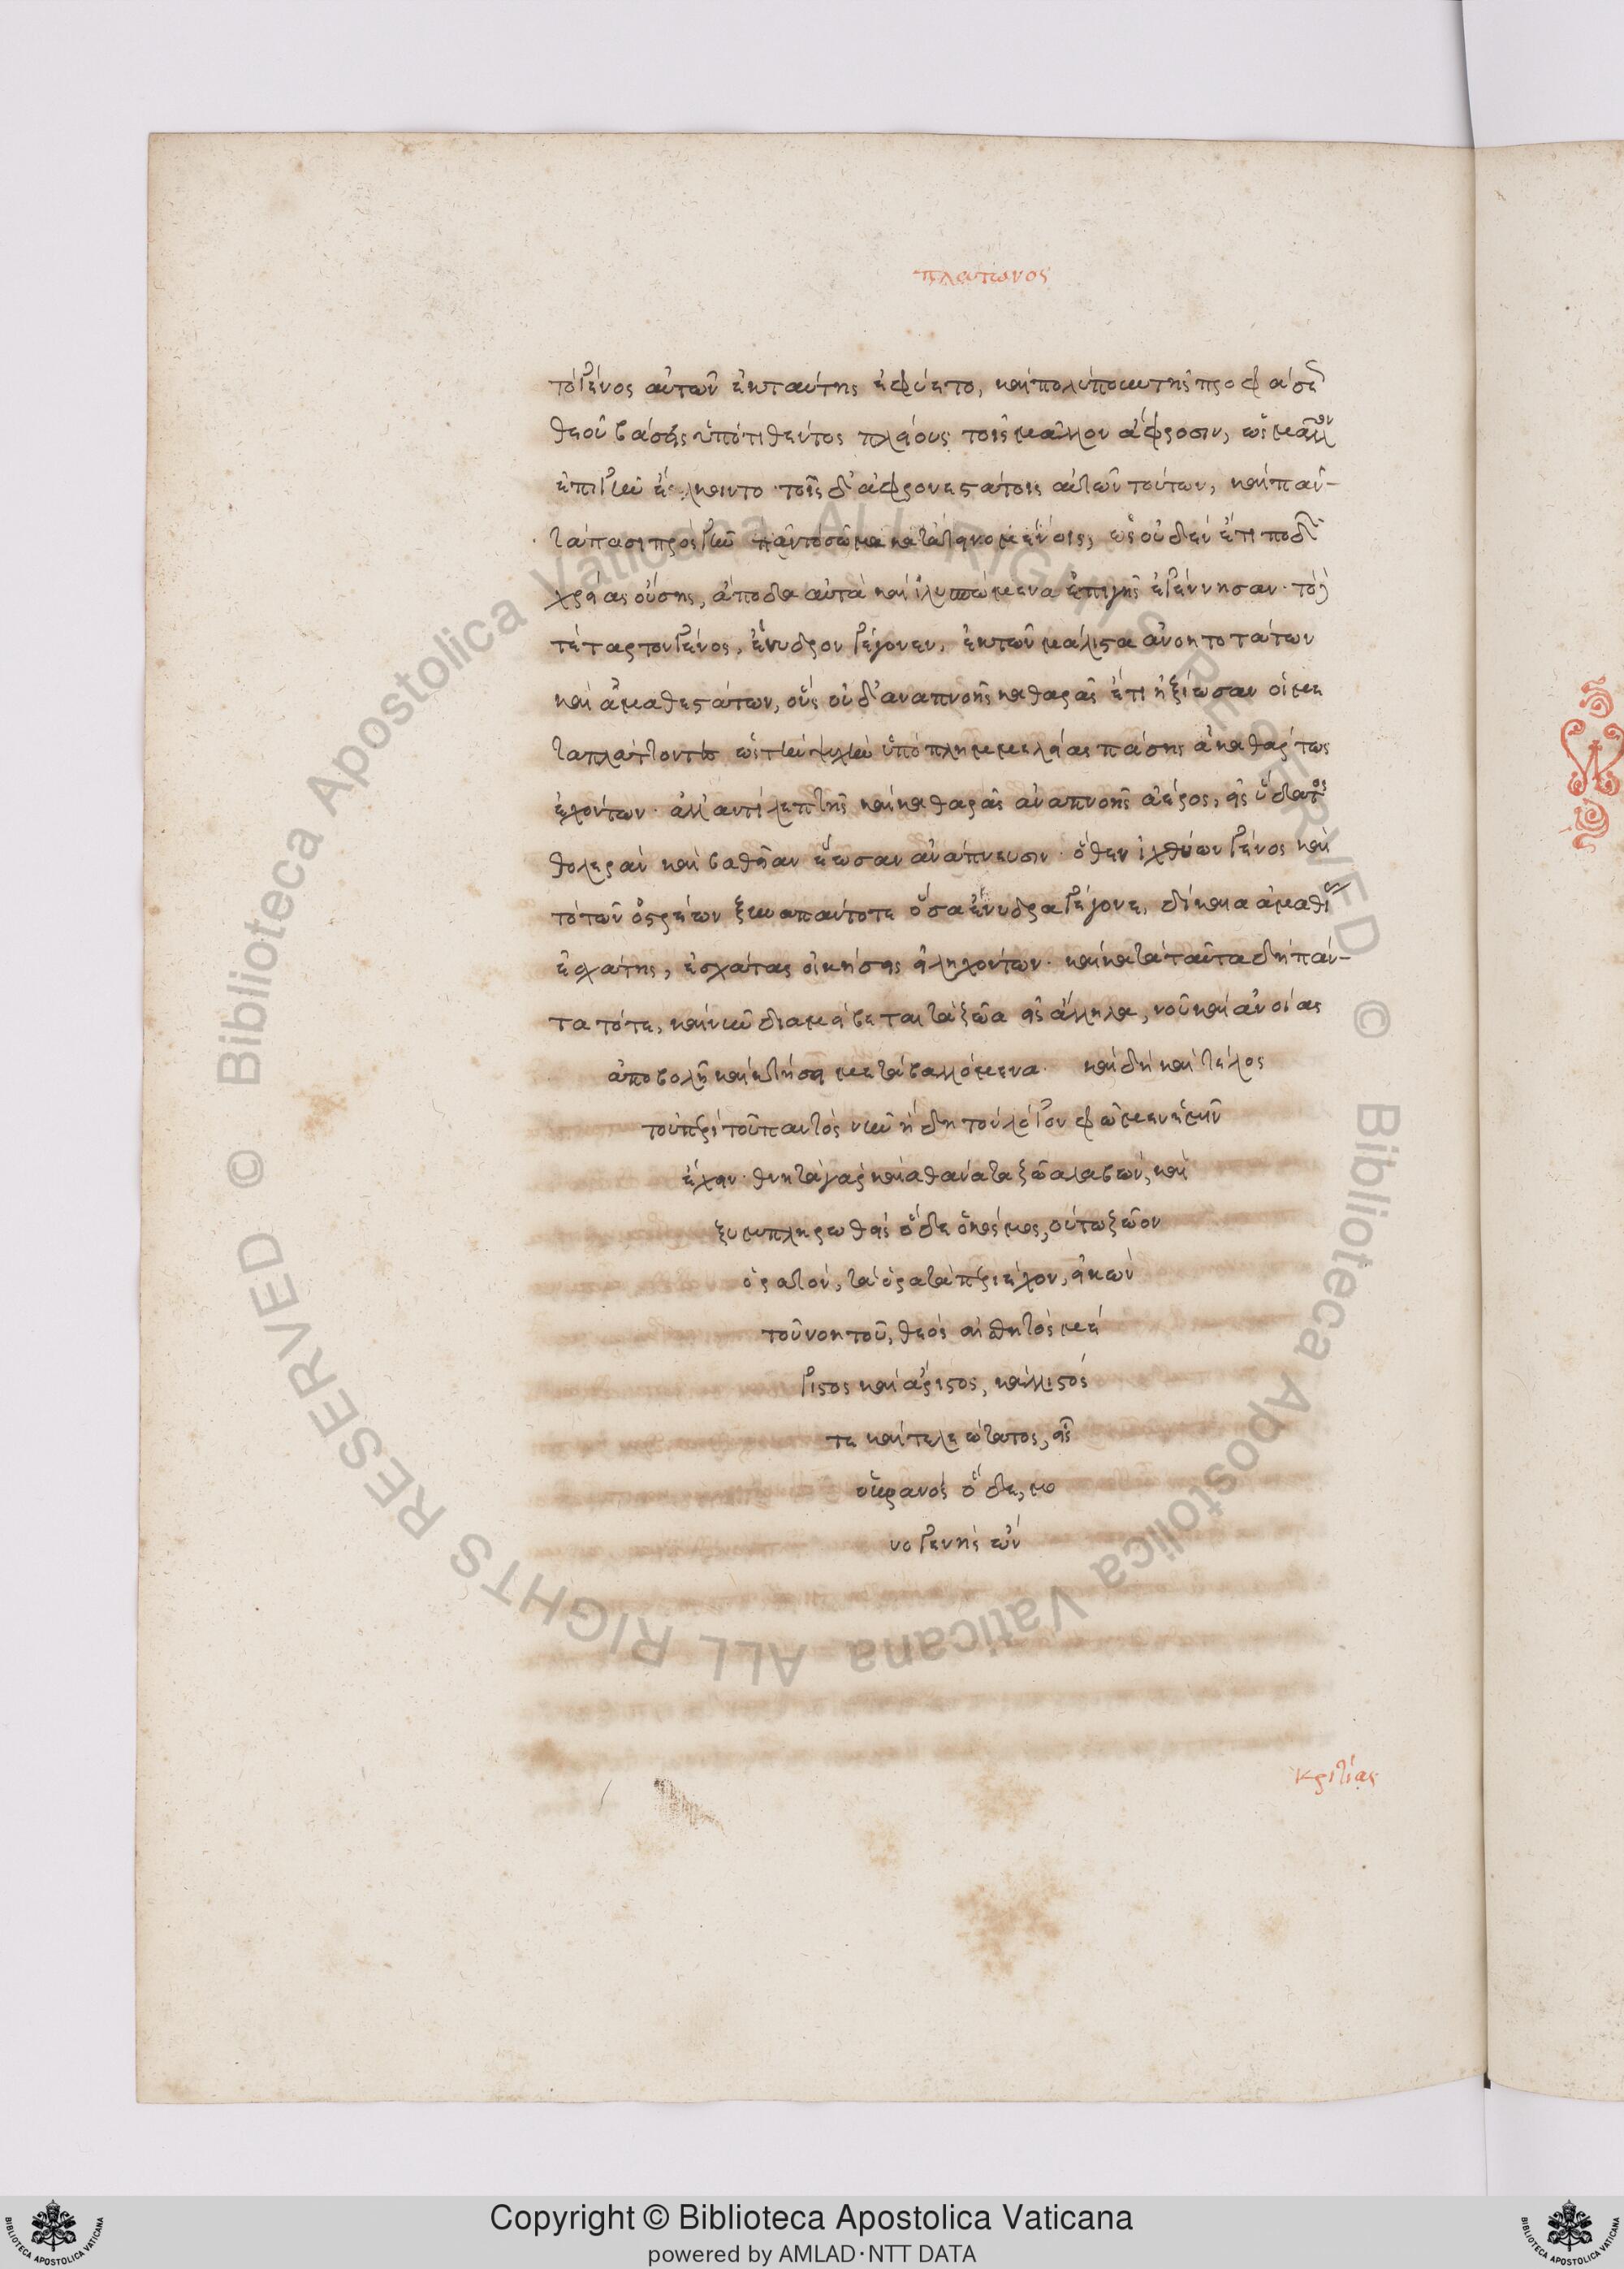 πλάτωνος
τὸ γένος αὐτῶν ἐκ ταύτης ἐφύετο, καὶ πολύπουν τῆς προφάσε
θεοῦ βάσεις ὑποτιθέντος πλείους τοῖς μᾶλλον ἄφροσιν, ὡς μᾶλλον
ἐπὶ γῆν ἕλκοιντο· τοῖς δ' ἀφρονεστάτοις αὐτῶν τούτων, καὶ παν-
τάπασι πρὸς γῆν πᾶν τὸ σῶμα κατατεινομένοις, ὡς οὐδὲν ἔτι ποδῶν
χρείας οὔσης, ἄποδα αὐτὰ καὶ ἰλυσπώμενα ἐπὶ γῆς ἐγέννησαν· τὸ δὲ
τέταρτον γένος, ἔνυδρον γέγονεν, ἐκ τῶν μάλιστα ἀνοητοτάτων
καὶ ἀμαθεστάτων, οὓς οὐδ' ἀναπνοῆς καθαρᾶς ἔτι ἠξίωσαν οἱ με
ταπλάττοντες ὡς τὴν ψυχὴν ὑπὸ πλημμελείας πάσης ἀκαθάρτως
ἐχόντων· ἀλλ' ἀντὶ λεπτῆς καὶ καθαρᾶς ἀναπνοῆς ἀέρος, εἰς ὕδατος
θολερὰν καὶ βαθεῖαν ἔωσαν ἀνάπνευσιν· ὅθεν ἰχθύων γένος καὶ
τὸ τῶν ὀστρέων ξυναπάντοτε ὅσα ἔνυδρα γέγονε, δίκαια ἀμαθίας
ἐσχάτης, ἐσχάτας οἰκήσεις εἰληχόντων· καὶ κατὰ ταῦτα δὴ πάν-
τα τότε, καὶ νῦν διαμείβεται τὰ ζῶα εἰς ἄλληλα, νοῦ καὶ ἀνοίας
ἀποβολῇ καὶ κτήσει μεταβαλλόμενα· καὶ δὴ καὶ τέλος
τοῦ περὶ τοῦ παντὸς νῦν ἤδη τὸν λόγον φῶμεν ἡμῖν
ἔχειν· θνητὰ γὰρ καὶ ἀθάνατα ζῶα λαβὼν, καὶ
ξυμπληρωθεὶς ὅδε ὁ κόσμος, οὕτω ζῶον
ὁρατὸν, τὰ ὁρατὰ περιέχον, εἰκὼν
τοῦ νοητοῦ, θεὸς αἰσθητὸς μέ
γιστος καὶ ἄριστος, κάλλιστός
τε καὶ τελεώτατος, εἷς
οὐρανὸς ὅδε, μο
νογενὴς ὤν
κριτίας
Copyright © Biblioteca Apostolica Vaticana
powered by AMLAD·NTT DATA